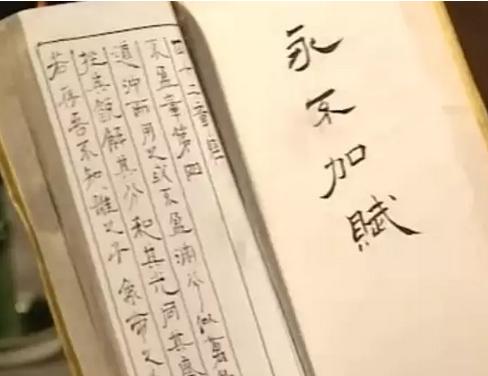 永不加賦
四十二章經
不盈章第四
道沖而用之或不盈淵兮似萬
挫其銳解其分和其光同其塵
若存吾不知誰之子 象帝之